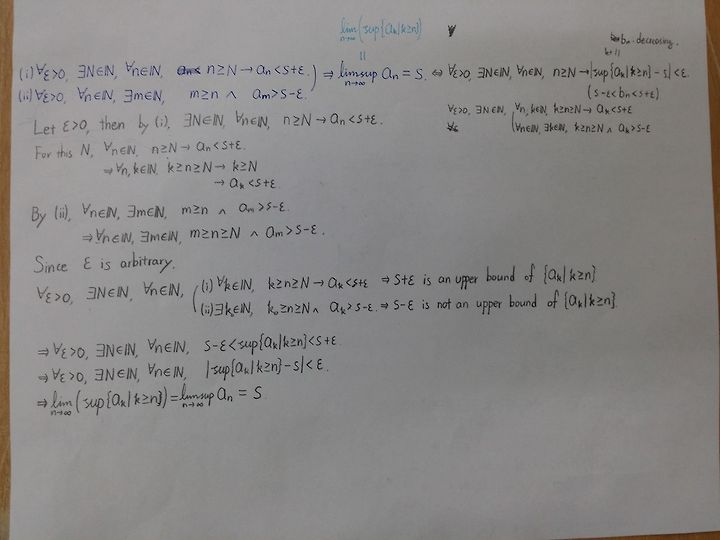 lim n→∞ (sup{aₖ|k≥n})
||
bₙ: decreasing.
k+1
(i) ∀ε>0, ∃N∈ℕ, ∀n∈ℕ, n≥N → aₙ<s+ε.
(ii) ∀ε>0, ∀n∈ℕ, ∃m∈ℕ, m≥n ∧ aₘ>s-ε.
⇒ limsup n→∞ aₙ = s. ⇔ ∀ε>0, ∃N∈ℕ, ∀n∈ℕ, n≥N → |sup{aₖ|k≥n}-s|<ε.
(s-ε<bₙ<s+ε)
∀ε>0, ∃N∈ℕ, (∀n,k∈ℕ, k≥n≥N → aₖ<s+ε
∀n∈ℕ, ∃k∈ℕ, k≥n≥N ∧ aₖ>s-ε
Let ε>0, then by (i), ∃N∈ℕ, ∀n∈ℕ, n≥N → aₙ<s+ε.
For this N, ∀n∈ℕ, n≥N → aₙ<s+ε.
⇒ ∀n,k∈ℕ, k≥n≥N → k≥N
→ aₖ<s+ε.
By (ii), ∀n∈ℕ, ∃m∈ℕ, m≥n ∧ aₘ>s-ε.
⇒ ∀n∈ℕ, ∃m∈ℕ, m≥n≥N ∧ aₘ>s-ε.
Since ε is arbitrary.
∀ε>0, ∃N∈ℕ, ∀n∈ℕ, (i) ∀k∈ℕ, k≥n≥N → aₖ<s+ε ⇒ s+ε is an upper bound of {aₖ|k≥n}
(ii) ∃k₀∈ℕ, k₀≥n≥N ∧ aₖ>s-ε. ⇒ s-ε is not an upper bound of {aₖ|k≥n}.
⇒ ∀ε>0, ∃N∈ℕ, ∀n∈ℕ, s-ε<sup{aₖ|k≥n}<s+ε.
⇒ ∀ε>0, ∃N∈ℕ, ∀n∈ℕ, |sup{aₖ|k≥n}-s|<ε.
⇒ lim n→∞ (sup{aₖ|k≥n}) = limsup n→∞ aₙ = s.